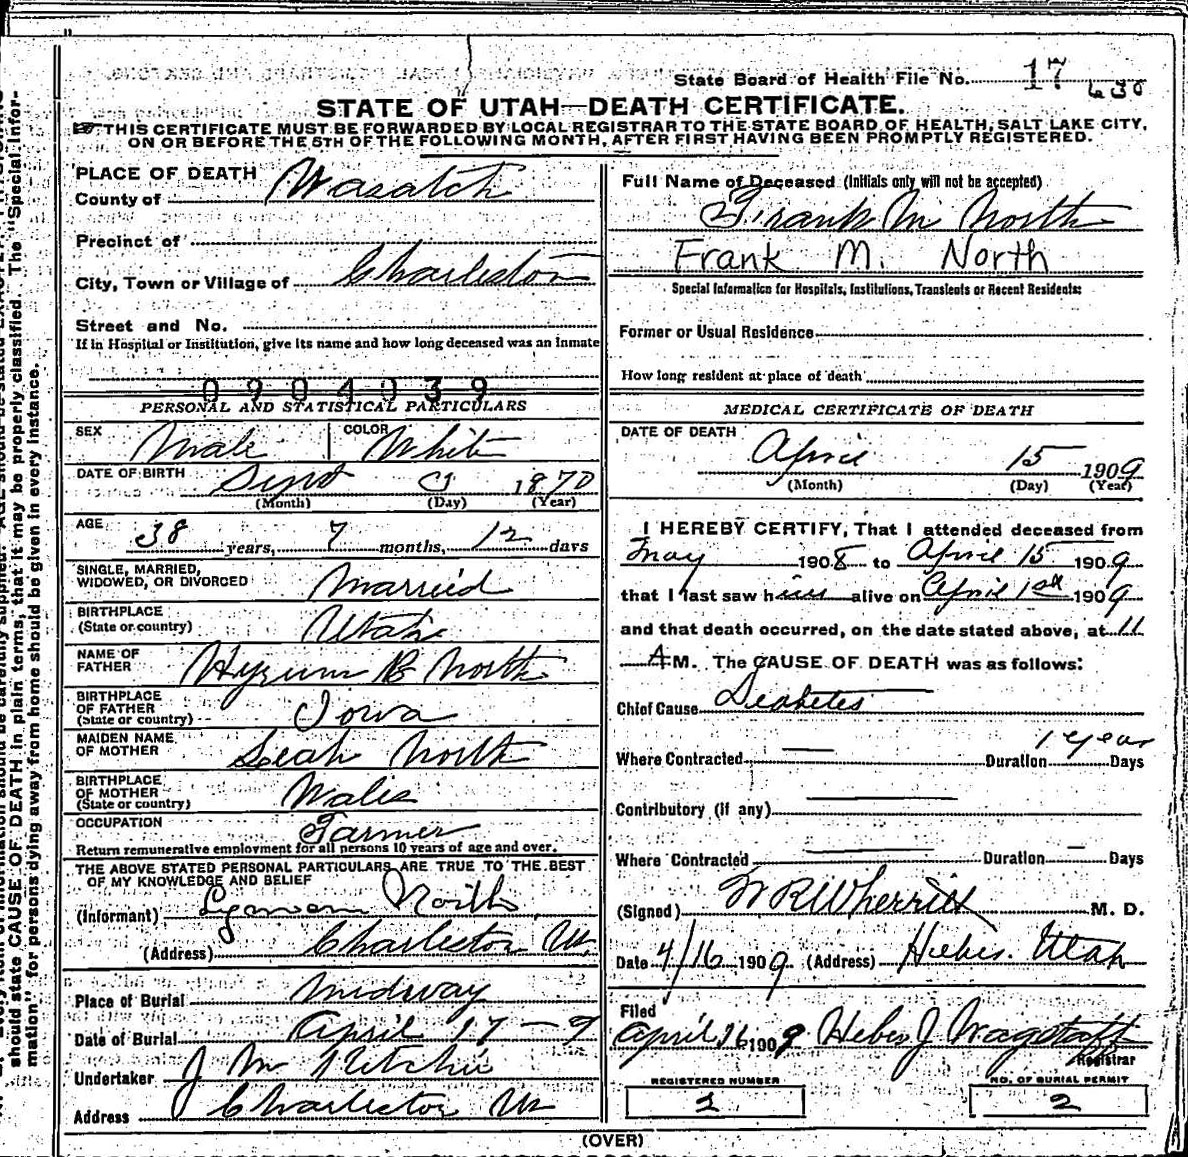 State Board of Health File No. 17 630
STATE OF UTAH—DEATH CERTIFICATE.
THIS CERTIFICATE MUST BE FORWARDED BY LOCAL REGISTRAR TO THE STATE BOARD OF HEALTH, SALT LAKE CITY,
ON OR BEFORE THE 5TH OF THE FOLLOWING MONTH, AFTER FIRST HAVING BEEN PROMPTLY REGISTERED.
PLACE OF DEATH
County of Wasatch
Precinct of
City, Town or Village of Charleston
Street and No.
If in Hospital or Institution, give its name and how long deceased was an inmate
0904039
PERSONAL AND STATISTICAL PARTICULARS
SEX Male COLOR White
DATE OF BIRTH Sept 1870
(Month) (Day) (Year)
AGE 38 years, 7 months, 12 days
SINGLE, MARRIED,
WIDOWED, OR DIVORCED Married
BIRTHPLACE
(State or country) Utah
NAME OF
FATHER Hyrum B North
BIRTHPLACE
OF FATHER
(State or country) Iowa
MAIDEN NAME
OF MOTHER Leah North
BIRTHPLACE
OF MOTHER
(State or country) Wales
OCCUPATION Farmer
Return remunerative employment for all persons 10 years of age and over.
THE ABOVE STATED PERSONAL PARTICULARS ARE TRUE TO THE BEST
OF MY KNOWLEDGE AND BELIEF
(Informant) Lyman North
(Address) Charleston Ut
Place of Burial Midway
Date of Burial April 17 - 9
Undertaker J M Ritchie
Address Charleston Ut
Full Name of Deceased (Initials only will not be accepted)
Frank M North
Frank M. North
Special Information for Hospitals, Institutions, Transients or Recent Residents:
Former or Usual Residence
How long resident at place of death
MEDICAL CERTIFICATE OF DEATH
DATE OF DEATH
April 15 1909
(Month) (Day) (Year)
I HEREBY CERTIFY, That I attended deceased from
May 1908 to April 15 1909
that I last saw him alive on April 1st 1909
and that death occurred, on the date stated above, at 11
A M. The CAUSE OF DEATH was as follows:
Chief Cause Diabetes
1 year
Where Contracted — Duration Days
Contributory (if any) —
Where Contracted — Duration — Days
(Signed) W R Wherritt M. D.
Date 4/16 1909 (Address) Heber. Utah
Filed
April 16 1909 Heber J Wagstaff
Registrar
REGISTERED NUMBER NO. OF BURIAL PERMIT
2 2
(OVER)
should state CAUSE OF DEATH in plain terms, that it may be properly classified. The "Special Infor-
mation" for persons dying away from home should be given in every instance.